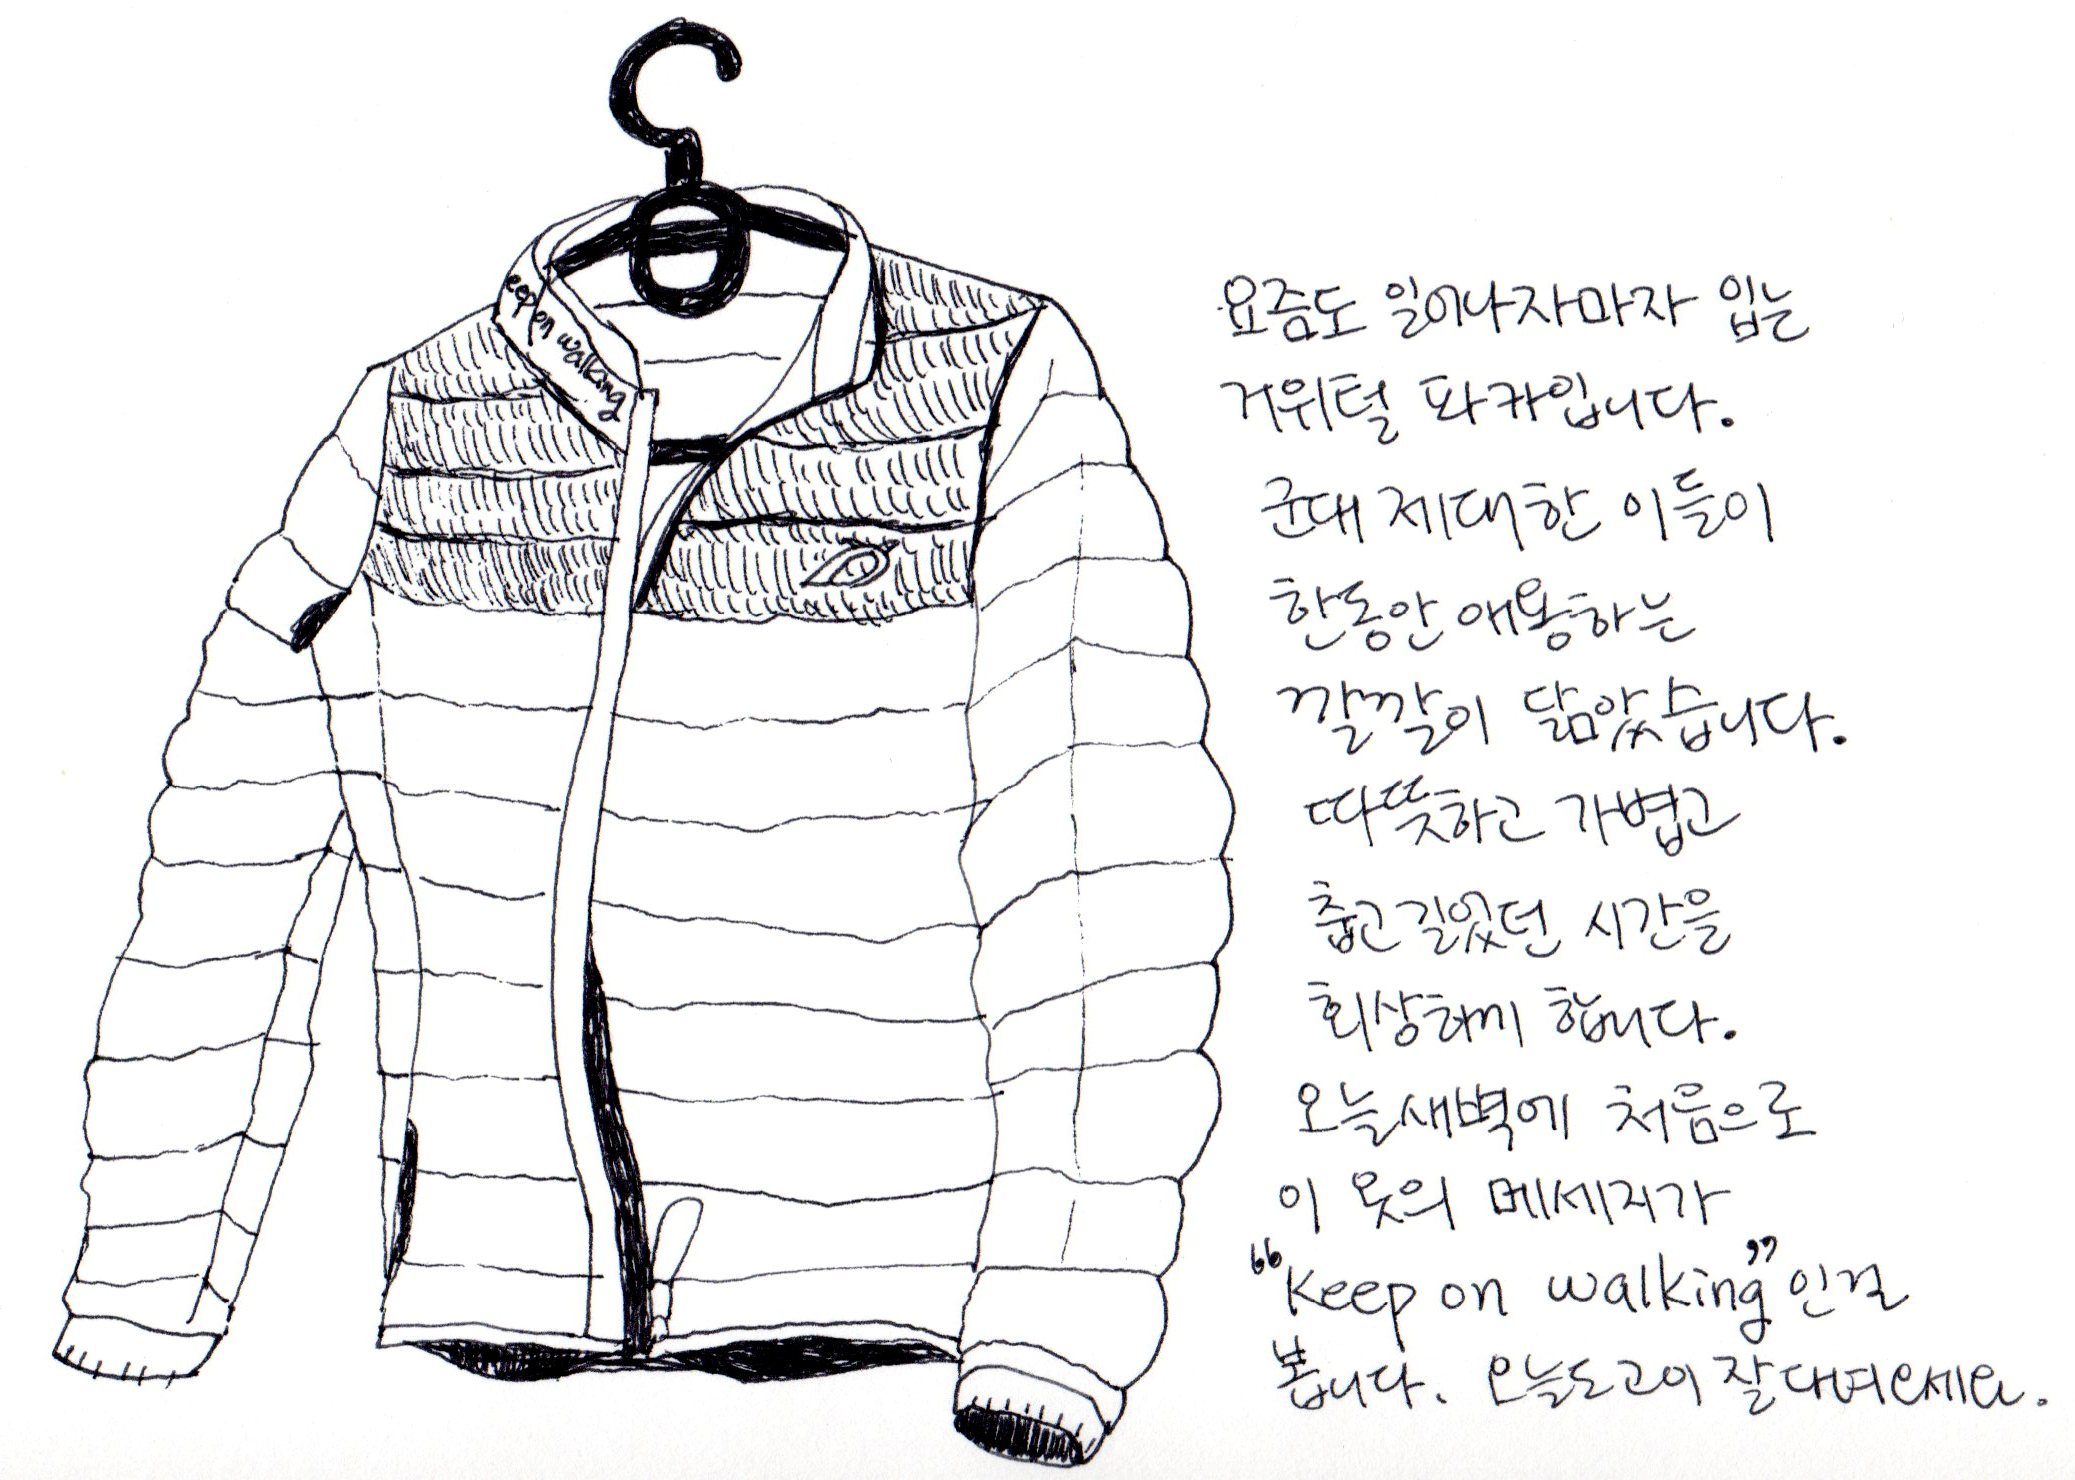 eep on walking
요즘도 일어나자마자 입는
거위털 파카입니다.
군대 제대한 이들이
한동안 애용하는
깔깔이 닮았습니다.
따뜻하고 가볍고
춥고 길었던 시간을
회상하게 합니다.
오늘 새벽에 처음으로
이 옷의 메세지가
“Keep on walking”인걸
봅니다. 오늘도 고이 잘 다녀오세요.